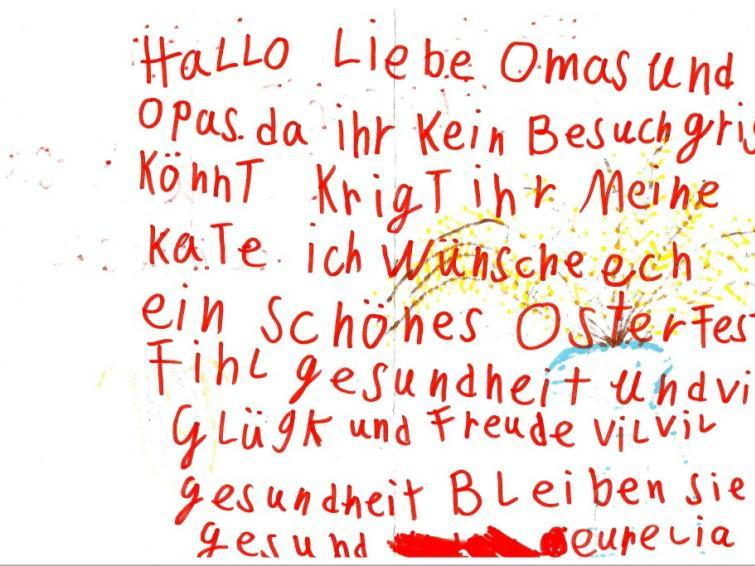 Hallo Liebe Omas und
Opas. da ihr Kein Besuch gris
KönnT KrigT ihr Meine
KaTe ich Wünsche ech
ein Schönes OsterFest
Fihl gesundheit und vi
GLügK und Freude vil viL
gesundheit BLeiben sie
gesund eurelia